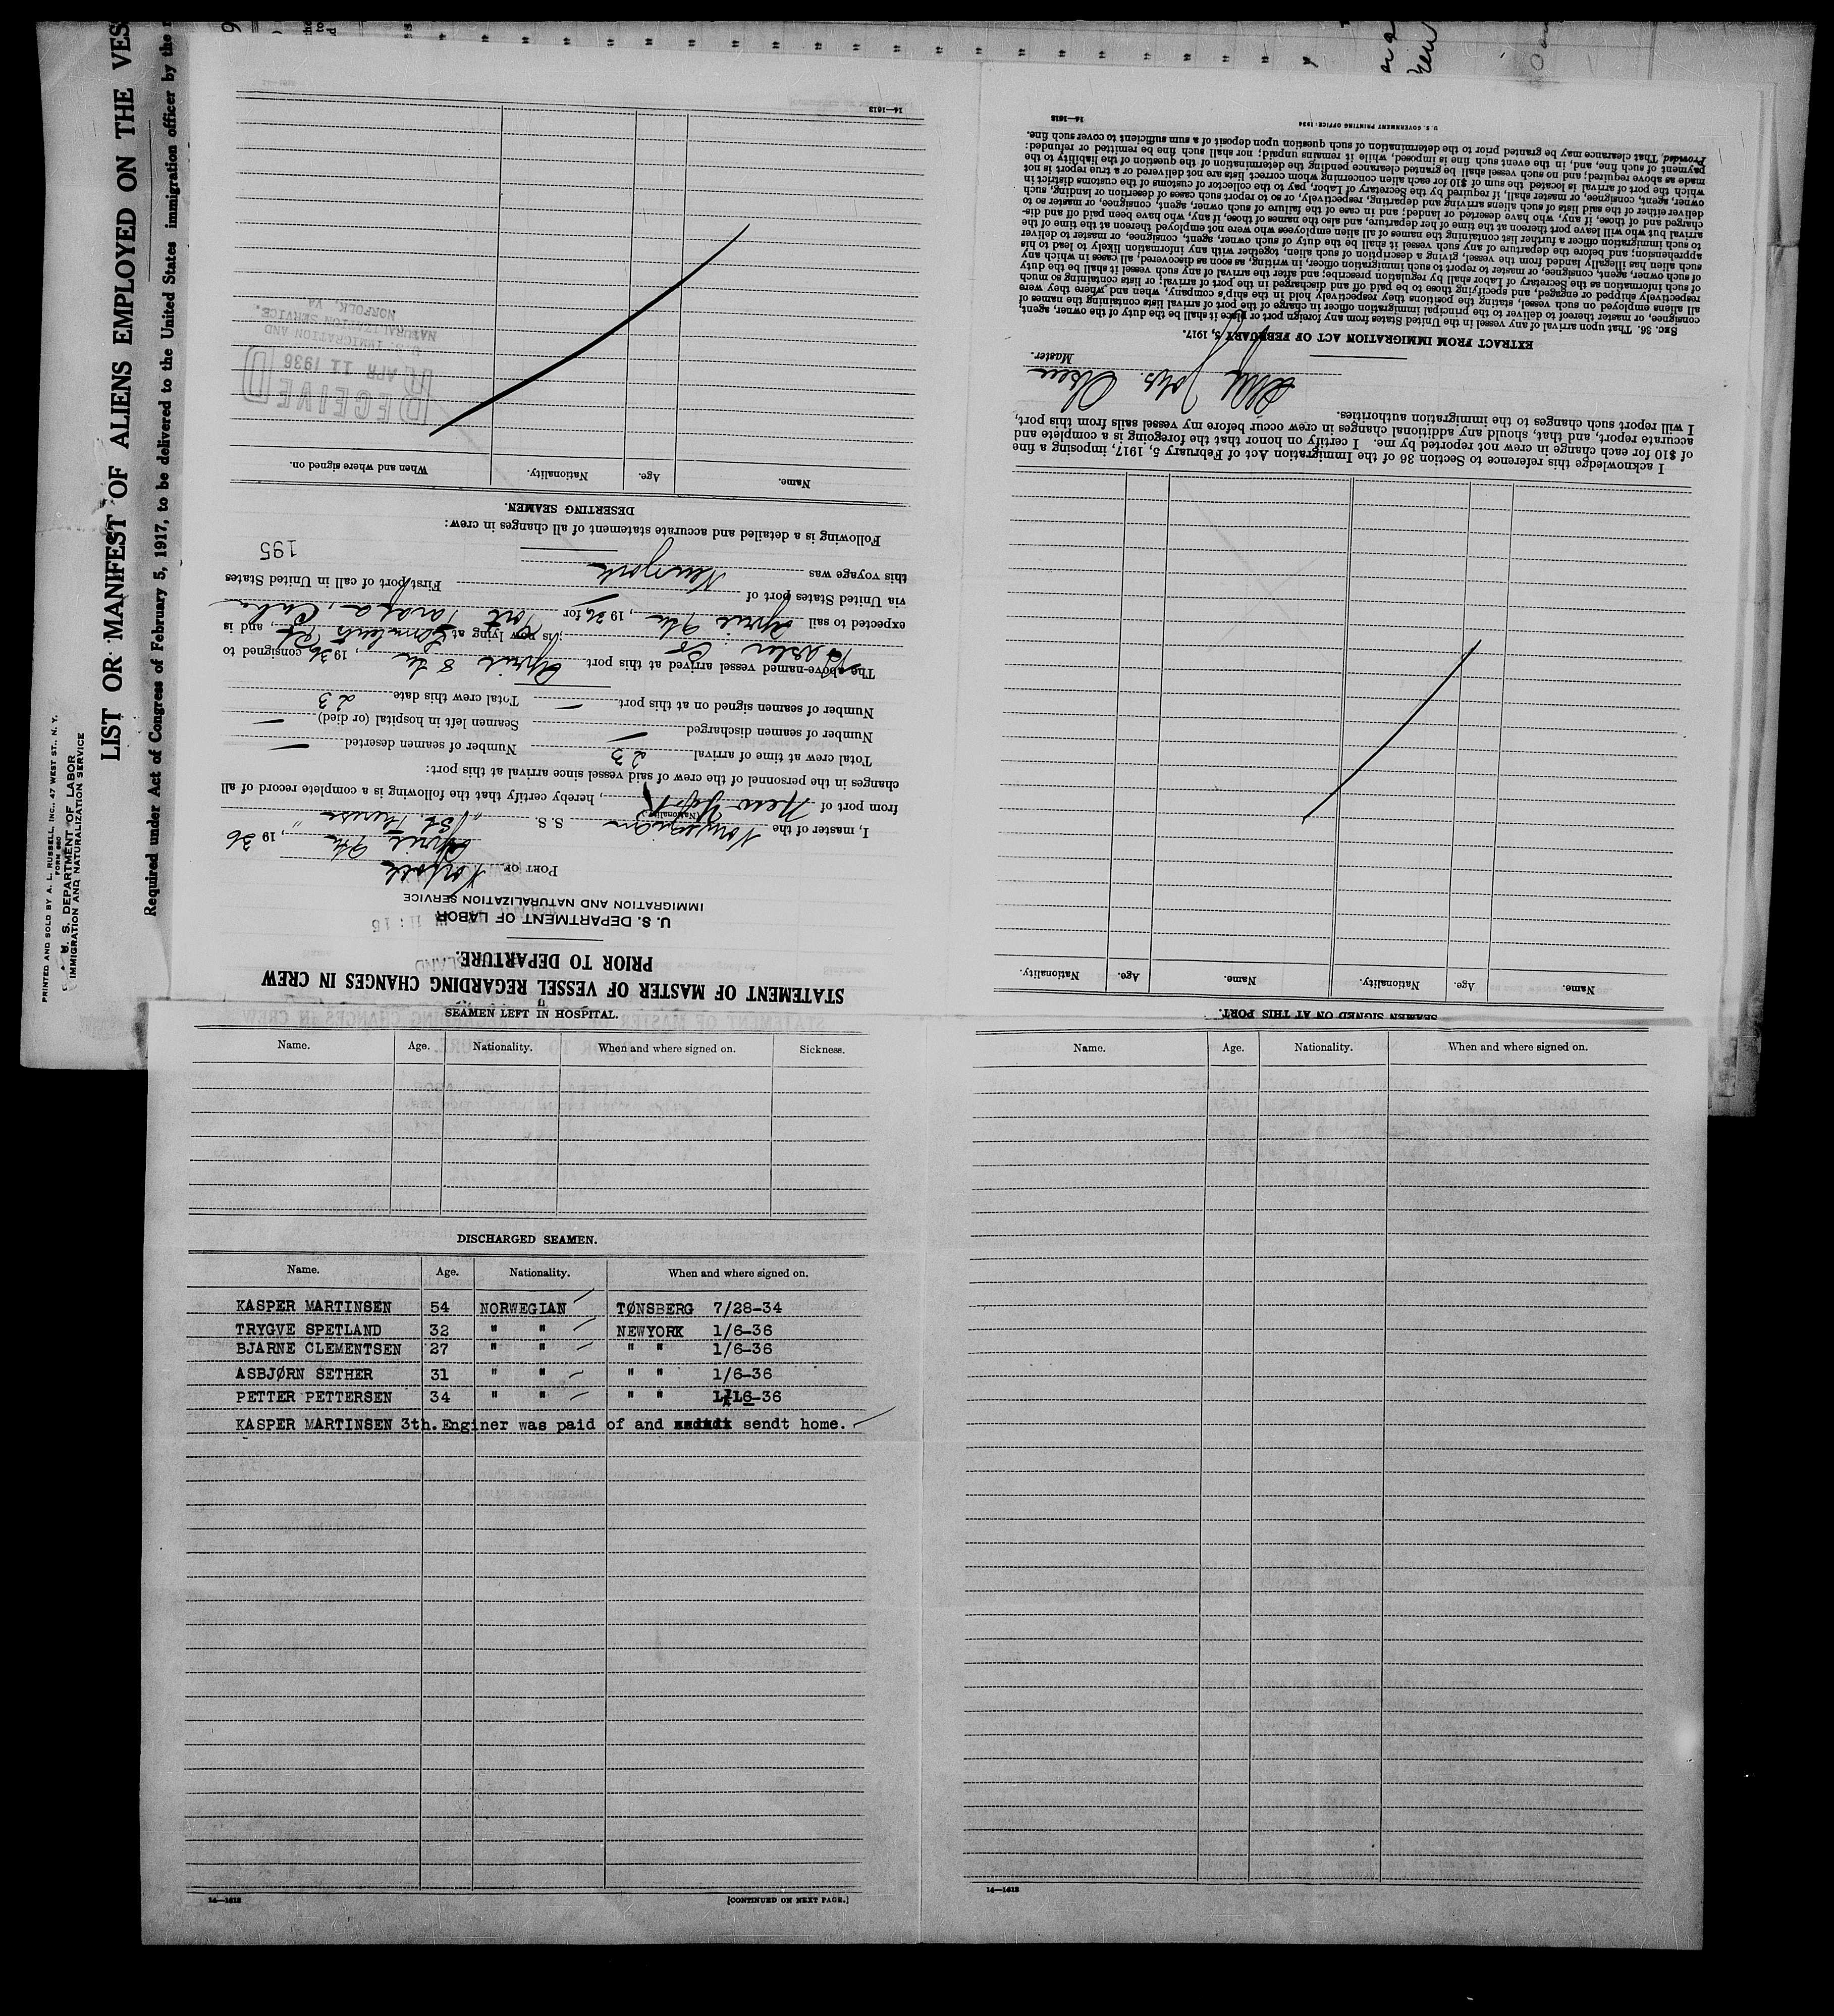 PRINTED AND SOLD BY A. L. RUSSELL, INC., 47 WEST ST., N. Y.
FORM 680
U. S. DEPARTMENT OF LABOR
IMMIGRATION AND NATURALIZATION SERVICE
LIST OR MANIFEST OF ALIENS EMPLOYED ON THE VES
Required under Act of Congress of February 5, 1917, to be delivered to the United States immigration officer by the
STATEMENT OF MASTER OF VESSEL REGARDING CHANGES IN CREW
PRIOR TO DEPARTURE.
U. S. DEPARTMENT OF LABOR
IMMIGRATION AND NATURALIZATION SERVICE
PORT OF Norfolk
April 9th, 1936
I, master of the Norwegian S. S. "St. Therese"
(Nationality)
from port of New York, hereby certify that the following is a complete record of all
changes in the personnel of the crew of said vessel since arrival at this port:
Total crew at time of arrival 23 Number of seamen deserted —
Number of seamen discharged — Seamen left in hospital (or died) —
Number of seamen signed on at this port — Total crew this date 23
The above-named vessel arrived at this port April 8th, 1936 consigned to
; is now lying at Lamberts Pt, and is
expected to sail April 9th, 1936, for Port Tarafa, Cuba
via United States port of — First port of call in United States
this voyage was New York
195
Following is a detailed and accurate statement of all changes in crew:
DESERTING SEAMEN.
Name. Age. Nationality. When and where signed on.
RECEIVED
APR 11 1936
U. S. IMMIGRATION AND
NATURALIZATION SERVICE.
NORFOLK, VA
14—1613
SEAMEN SIGNED ON AT THIS PORT.
Name. Age. Nationality. Name. Age. Nationality.
I acknowledge this reference to Section 36 of the Immigration Act of February 5, 1917, imposing a fine
of $10 for each change in crew not reported by me. I certify on honor that the foregoing is a complete and
accurate report, and that, should any additional changes in crew occur before my vessel sails from this port,
I will report such changes to the immigration authorities.
Johs. Olsen
Master.
EXTRACT FROM IMMIGRATION ACT OF FEBRUARY 5, 1917.
SEC. 36. That upon arrival of any vessel in the United States from any foreign port or place it shall be the duty of the owner, agent,
consignee, or master thereof to deliver to the principal immigration officer in charge of the port of arrival lists containing the names of
all aliens employed on such vessel, stating the positions they respectively hold in the ship's company, when and where they were
respectively shipped or engaged, and specifying those to be paid off and discharged in the port of arrival; or lists containing so much
of such information as the Secretary of Labor shall by regulation prescribe; and after the arrival of any such vessel it shall be the duty
of such owner, agent, consignee, or master to report to such immigration officer, in writing, as soon as discovered, all cases in which any
such alien has illegally landed from the vessel, giving a description of such alien, together with any information likely to lead to his
apprehension; and before the departure of any such vessel it shall be the duty of such owner, agent, consignee, or master to deliver
to such immigration officer a further list containing the names of all alien employees who were not employed thereon at the time of the
arrival but who will leave port thereon at the time of her departure, and also the names of those, if any, who have been paid off and dis-
charged and of those, if any, who have deserted or landed; and in case of the failure of such owner, agent, consignee, or master so to
deliver either of the said lists of such aliens arriving and departing, respectively, or so to report such cases of desertion or landing, such
owner, agent, consignee, or master shall, if required by the Secretary of Labor, pay to the collector of customs of the customs district in
which the port of arrival is located the sum of $10 for each alien concerning whom correct lists are not delivered or a true report is not
made as above required; and no such vessel shall be granted clearance pending the determination of the question of the liability to the
payment of such fine, and, in the event such fine is imposed, while it remains unpaid; nor shall such fine be remitted or refunded:
Provided, That clearance may be granted prior to the determination of such question upon deposit of a sum sufficient to cover such fine.
U. S. GOVERNMENT PRINTING OFFICE: 1934
14—1613
SEAMEN LEFT IN HOSPITAL.
Name. Age. Nationality. When and where signed on. Sickness.
DISCHARGED SEAMEN.
Name. Age. Nationality. When and where signed on.
KASPER MARTINSEN 54 NORWEGIAN TØNSBERG 7/28-34
TRYGVE SPETLAND 32 " " NEWYORK 1/6-36
BJARNE CLEMENTSEN 27 " " " " 1/6-36
ASBJØRN SETHER 31 " " " " 1/6-36
PETTER PETTERSEN 34 " " " " 1/16-36
KASPER MARTINSEN 3th. Enginer was paid of and sendt home.
14—1613
[CONTINUED ON NEXT PAGE.]
Name. Age. Nationality. When and where signed on.
14—1613